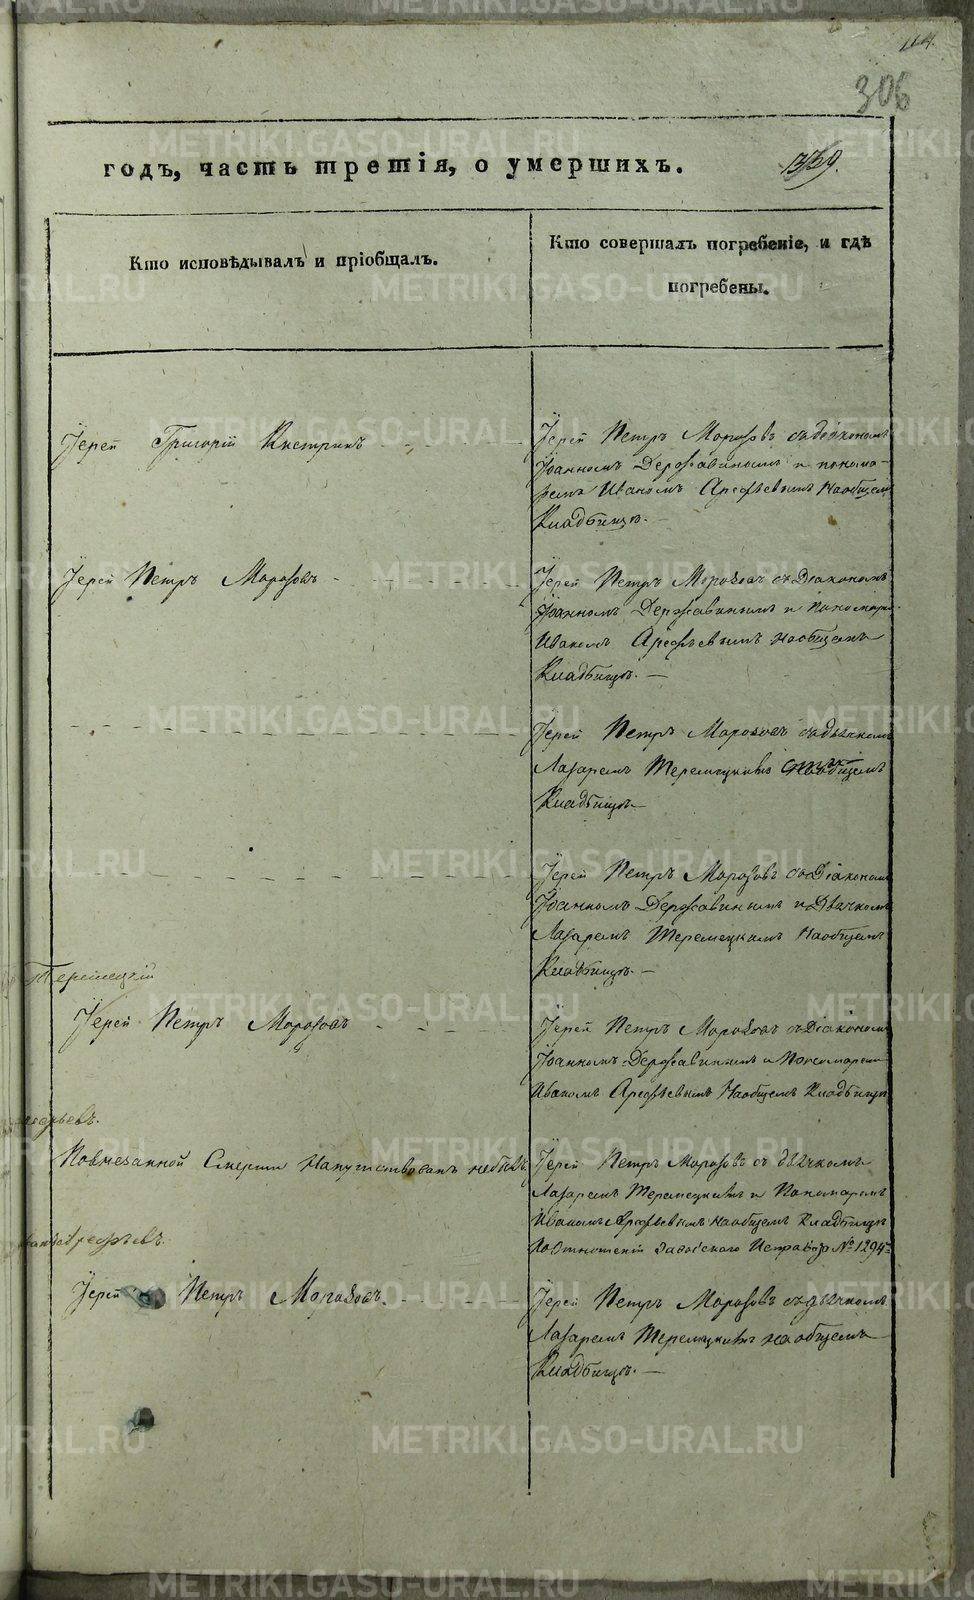 114.
306
годъ, часть третія, о умершихъ.
1339.
Кто исповѣдывалъ и пріобщалъ.
Кто совершалъ погребеніе, и гдѣ
погребены.
Іерей Григорій
Іерей Петръ Морозовъ съ діакономъ
Іоанномъ Державинымъ и понома-
ремъ Иваномъ Арефьевымъ на общемъ
Кладбищѣ.
Іерей Петръ Морозовъ
Іерей Петръ Морозовъ съ Діакономъ
Іоанномъ Державинымъ и Пономаре.
Иваномъ Арефьевымъ на общемъ
Кладбищѣ.
Іерей Петръ Морозовъ съ дьячкомъ
Лазаремъ Теремецкимъ на общемъ
Кладбищѣ
Іерей Петръ Морозовъ съ Діакономъ
Іоанномъ Державинымъ и Дьячкомъ
Лазаремъ Теремецкимъ на общемъ
Кладбищѣ.
Теремецкій
Іерей Петръ Морозовъ
Іерей Петръ Морозовъ съ Діакономъ
Іоанномъ Державинымъ и Пономаремъ
Иваномъ Арефьевымъ на общемъ Кладбищѣ
По внезапной Смерти Напутствованъ не былъ.
Іерей Петръ Морозовъ съ дьячкомъ
Лазаремъ Теремецкимъ и Пономаремъ
Иваномъ Арефьевымъ на общемъ Кладбищѣ
По отношенію Заводского Исправ № 1294
Арефьевъ.
Іерей Петръ Морозовъ.
Іерей Петръ Морозовъ съ дьячкомъ
Лазаремъ Теремецкимъ на общемъ
Кладбищѣ.
METRIKI.GASO-URAL.RU